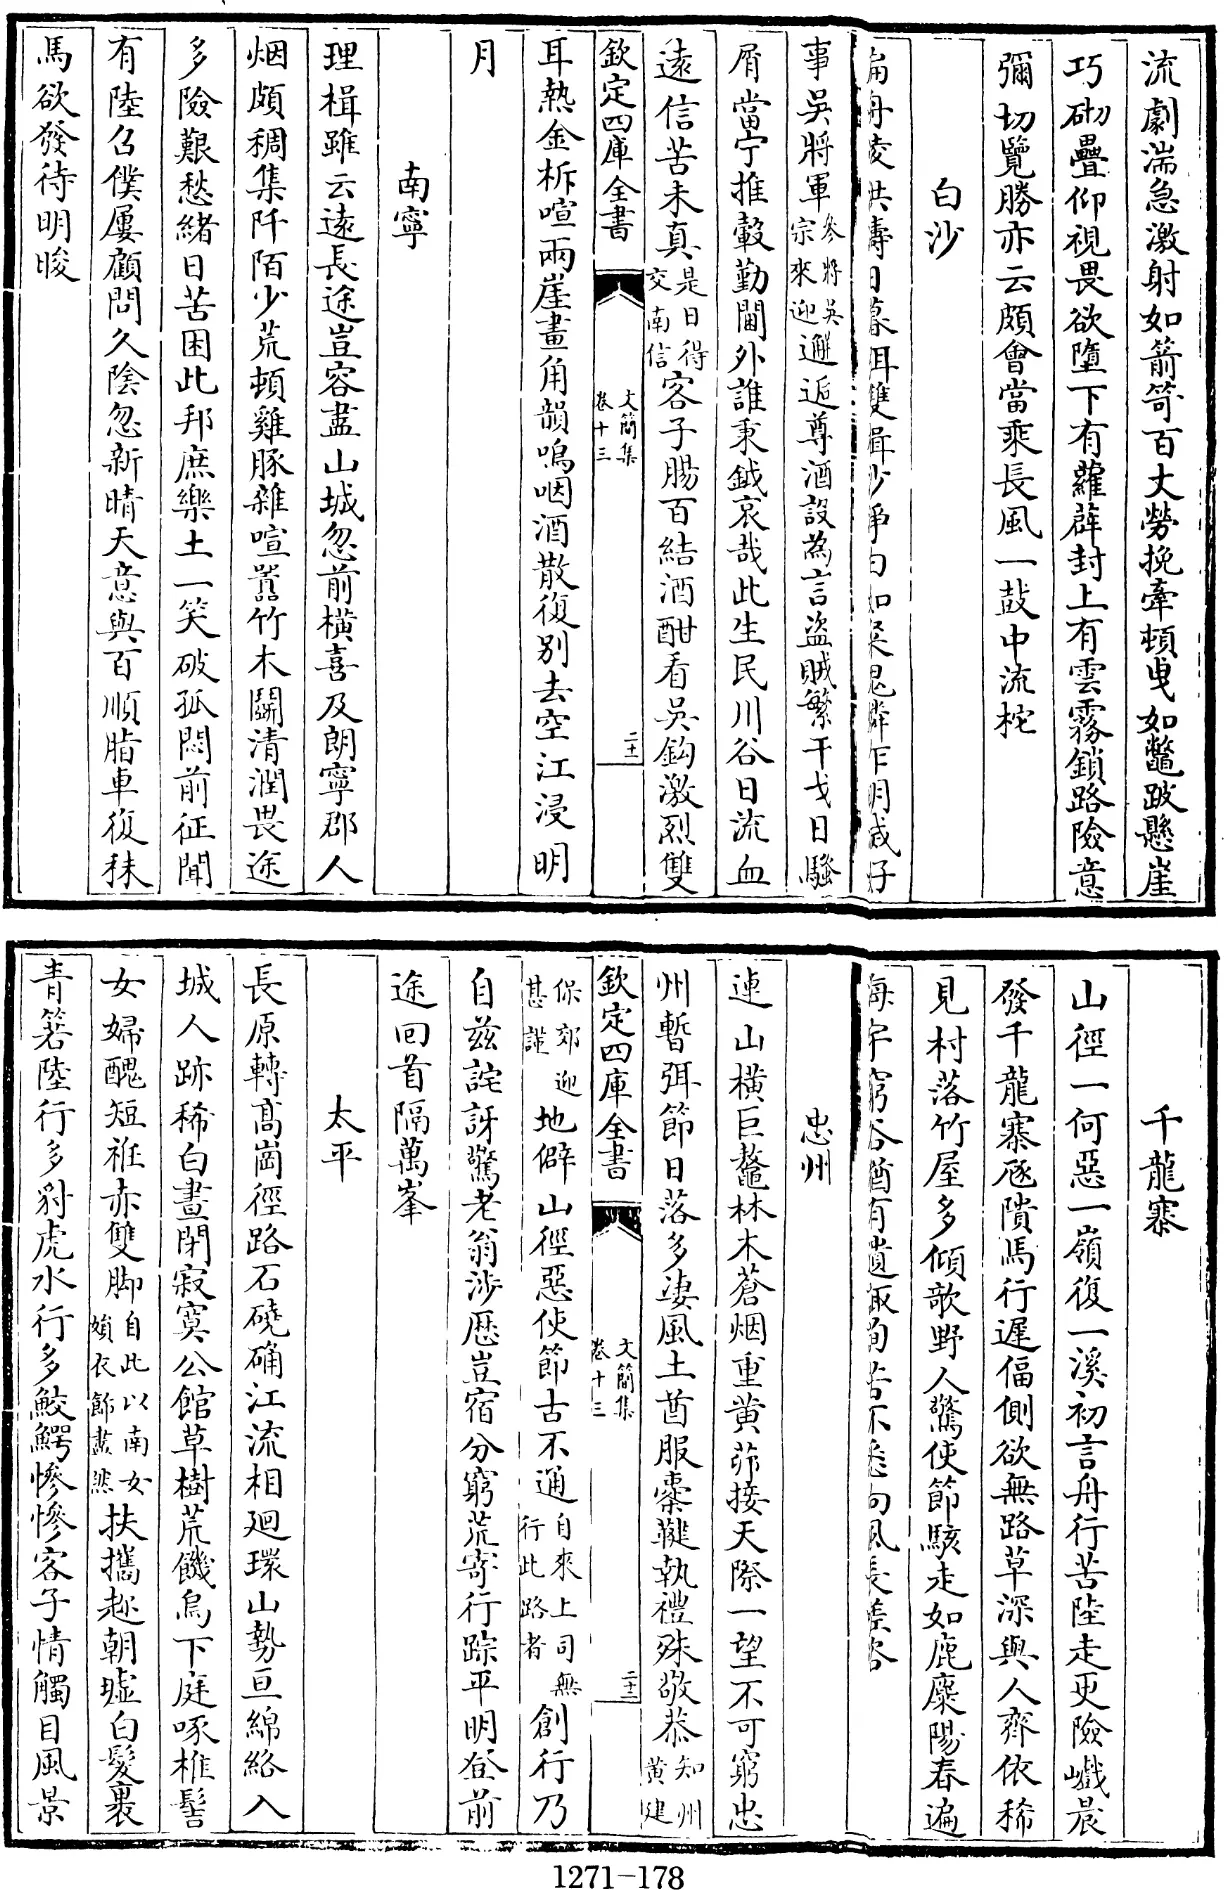 流劇湍急激射如箭笴百丈勞挽牽頓曳如鼈跛懸崖
巧砌疊仰視畏欲墮下有蘿薜封上有雲霧鎖路險意
彌切覽勝亦云頗會當乘長風一鼓中流柁
白沙
扁舟凌洪濤日暮弭雙楫沙淨白如鬼燐乍明滅好
事吳將軍參將吳宗來迎邂逅尊酒設為言盜賊繁干戈日騷
屑當宁推轂勤閫外誰秉鉞哀哉此生民川谷日流血
遠信苦未真是日得交南信客子腸百結酒酣看吳鈎激烈雙
欽定四庫全書 文簡集 卷十三 二十一
耳熱金柝喧兩崖畫角韻嗚咽酒散復別去空江浸明
月
南寧
理楫雖云遠長途豈容盡山城忽前橫喜及朗寧郡人
烟頗稠集阡陌少荒頓雞豚雜喧囂竹木鬭清潤畏途
多險艱愁緒日苦困此邦庶樂土一笑破孤悶前征聞
有陸召僕屢顧問久陰忽新晴天意與百順脂車復秣
馬欲發待明晙
千龍寨
山徑一何惡一嶺復一溪初言舟行苦陸走更險巇晨
發千龍寨豗隤馬行遲偪側欲無路草深與人齊依稀
見村落竹屋多傾欹野人驚使節駭走如鹿麋陽春遍
海宇窮谷猶有遺詢苦不悉向風長嗟咨
忠州
連山橫巨鼇林木蒼烟重黃茆接天際一望不可窮忠
州暫弭節日落多淒風土酋服櫜鞬執禮殊敬恭知州黃建
欽定四庫全書 文簡集 卷十三 二十二
保郊迎甚謹地僻山徑惡使節古不通自來上司無行此路者創行乃
自茲詫訝驚老翁涉歷豈宿分窮荒寄行踪平明登前
途回首隔萬峯
太平
長原轉高崗徑路石磽确江流相廻環山勢亘綿絡入
城人跡稀白晝閉寂寞公館草樹荒饑烏下庭啄椎髻
女婦醜短袿赤雙脚自此以南女媍衣飾盡然扶攜趂朝墟白髮裹
青箬陸行多豺虎水行多鮫鰐慘慘客子情觸目風景
1271-178